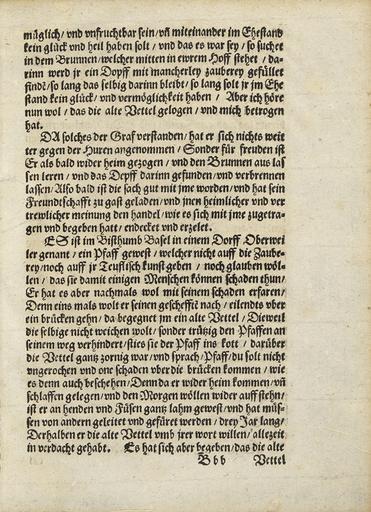 müglich/ vnd vnfruchtbar sein/ vñ miteinander im Ehestand
kein glück vnd heil haben solt/ vnd das es war sey/ so suchet
in dem Brunnen/ welcher mitten in ewrem Hoff stehet/ da-
rinn werd jr ein Dopff mit mancherley zauberey gefüllet
findẽ/ so lang das selbig darinn bleibt/ so lang solt jr jm Ehe
stand kein glück/ vnd vermöglichkeit haben/ Aber ich höre
nun wol/ das die alte Vettel gelogen/ vnd mich betrogen
hat.
DA solches der Graf verstanden/ hat er sich nichts weit
ter gegen der Huren angenommen/ Sonder für freuden ist
Er als bald wider heim gezogen/ vnd den Brunnen aus las
sen leren/ vnd das Depff darinn gefunden/ vnd verbrennen
lassen/ Also bald ist die sach gut mit jme worden/ vnd hat sein
Freundtschafft zu gast geladen/ vnd jnen heimlicher vnd ver
trewlicher meinung den handel/ wie es sich mit jme zugetra-
gen vnd begeben hatt/ endecket vnd erzelet.
ES ist im Bisthumb Basel in einem Dorff Oberwei
ler genant/ ein Pfaff gewest/ welcher nicht auff die Zaube-
rey/ noch auff jr Teuflisch kunst geben/ noch glauben wöl-
len/ das sie damit einigen Menschen können schaden thun/
Er hat es aber nachmals wol mit seinem schaden erfaren/
Denn eins mals wolt er seinen gescheffte nach/ eilendts vber
ein brücken gehn/ da begegnet jm ein alte Vettel/ Dieweil
die selbige nicht weichen wolt/ sonder trützig den Pfaffen an
seinem weg verhindert/ sties sie der Pfaff ins kott/ darüber
die Vettel gantz zornig war/ vnd sprach/ Pfaff/ du solt nicht
vngerochen vnd one schaden vber die brücken kommen/ wie
es denn auch beschehen/ Denn da er wider heim kommen/ vñ
schlaffen gelegen/ vnd den Morgen wöllen wider auff stehn/
ist er an henden vnd Füsen gantz lahm gewest/ vnd hat müs-
sen von andern geleitet vnd gefüret werden/ drey Jar lang/
Derhalben er die alte Vettel vmb jrer wort willen/ allezeit
in verdacht gehabt. Es hat sich aber begeben/ das die alte
B b b Vettel